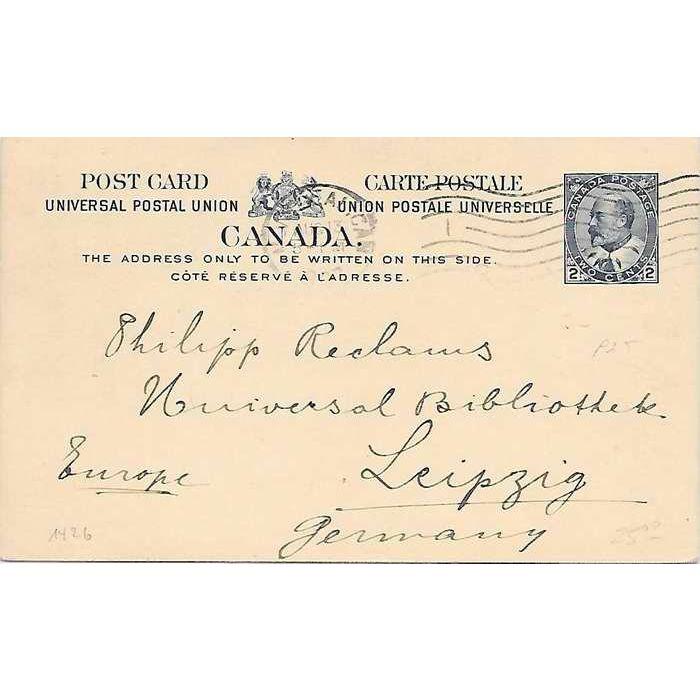 POST CARD
CARTE POSTALE
UNIVERSAL POSTAL UNION
UNION POSTALE UNIVERSELLE
CANADA.
THE ADDRESS ONLY TO BE WRITTEN ON THIS SIDE.
CÔTÉ RÉSERVÉ À L'ADRESSE.
CANADA POSTAGE
2 TWO CENTS 2
Philipp Reclams
Universal Bibliothek
Europe
Leipzig
Germany
1426